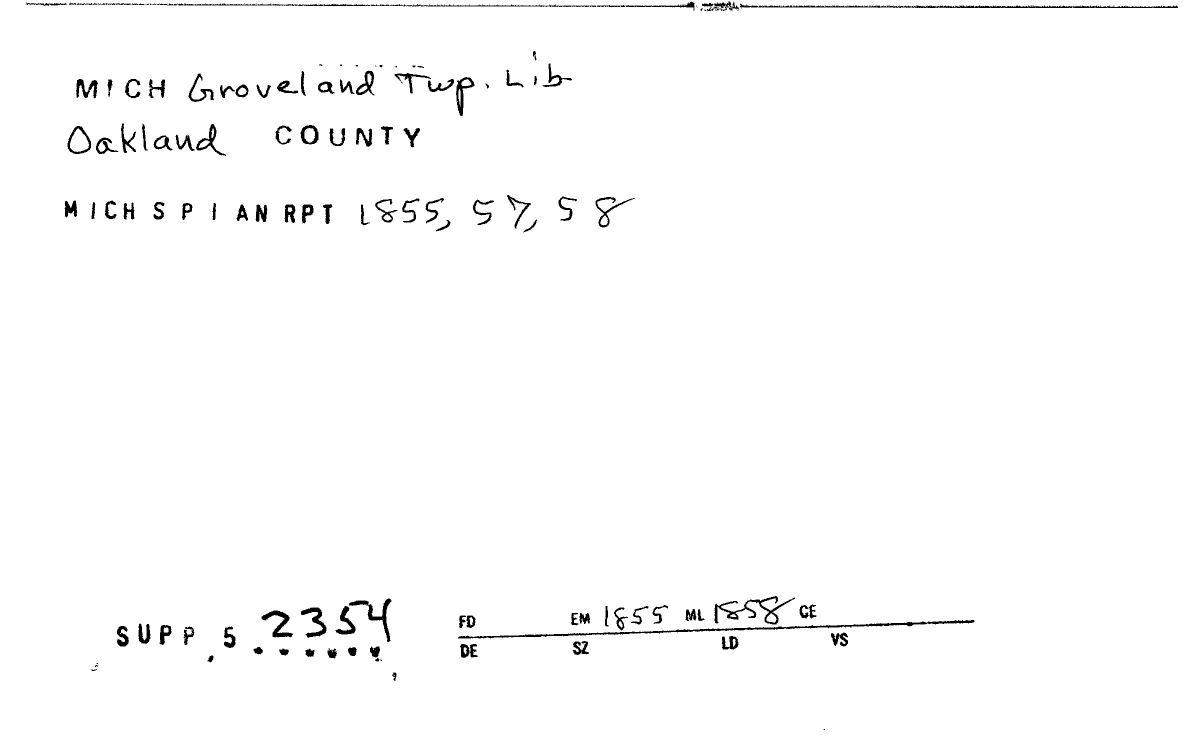 MICH Groveland Twp. Lib
Oakland COUNTY
MICH S P I AN RPT 1855, 57, 58
SUPP. 5 2354
FD EM 1855 ML 1858 CE
DE SZ LD VS